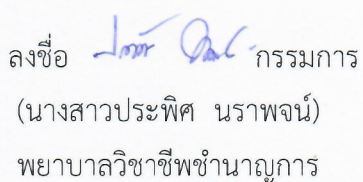 ลงชื่อ กรรมการ
(นางสาวประพิศ นราพจน์)
พยาบาลวิชาชีพชำนาญการ